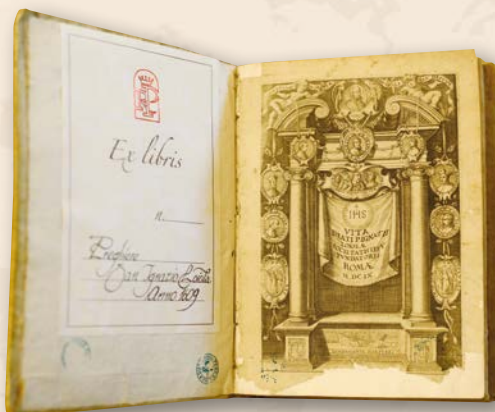 Ex libris
n.
Preghiere
San Ignazio Loiola
Anno 1609
IHS
VITA
BEATI P. IGNATII
LOIOLAE
SOCIETATIS IESV
FVNDATORIS
ROMÆ
M. DC.IX